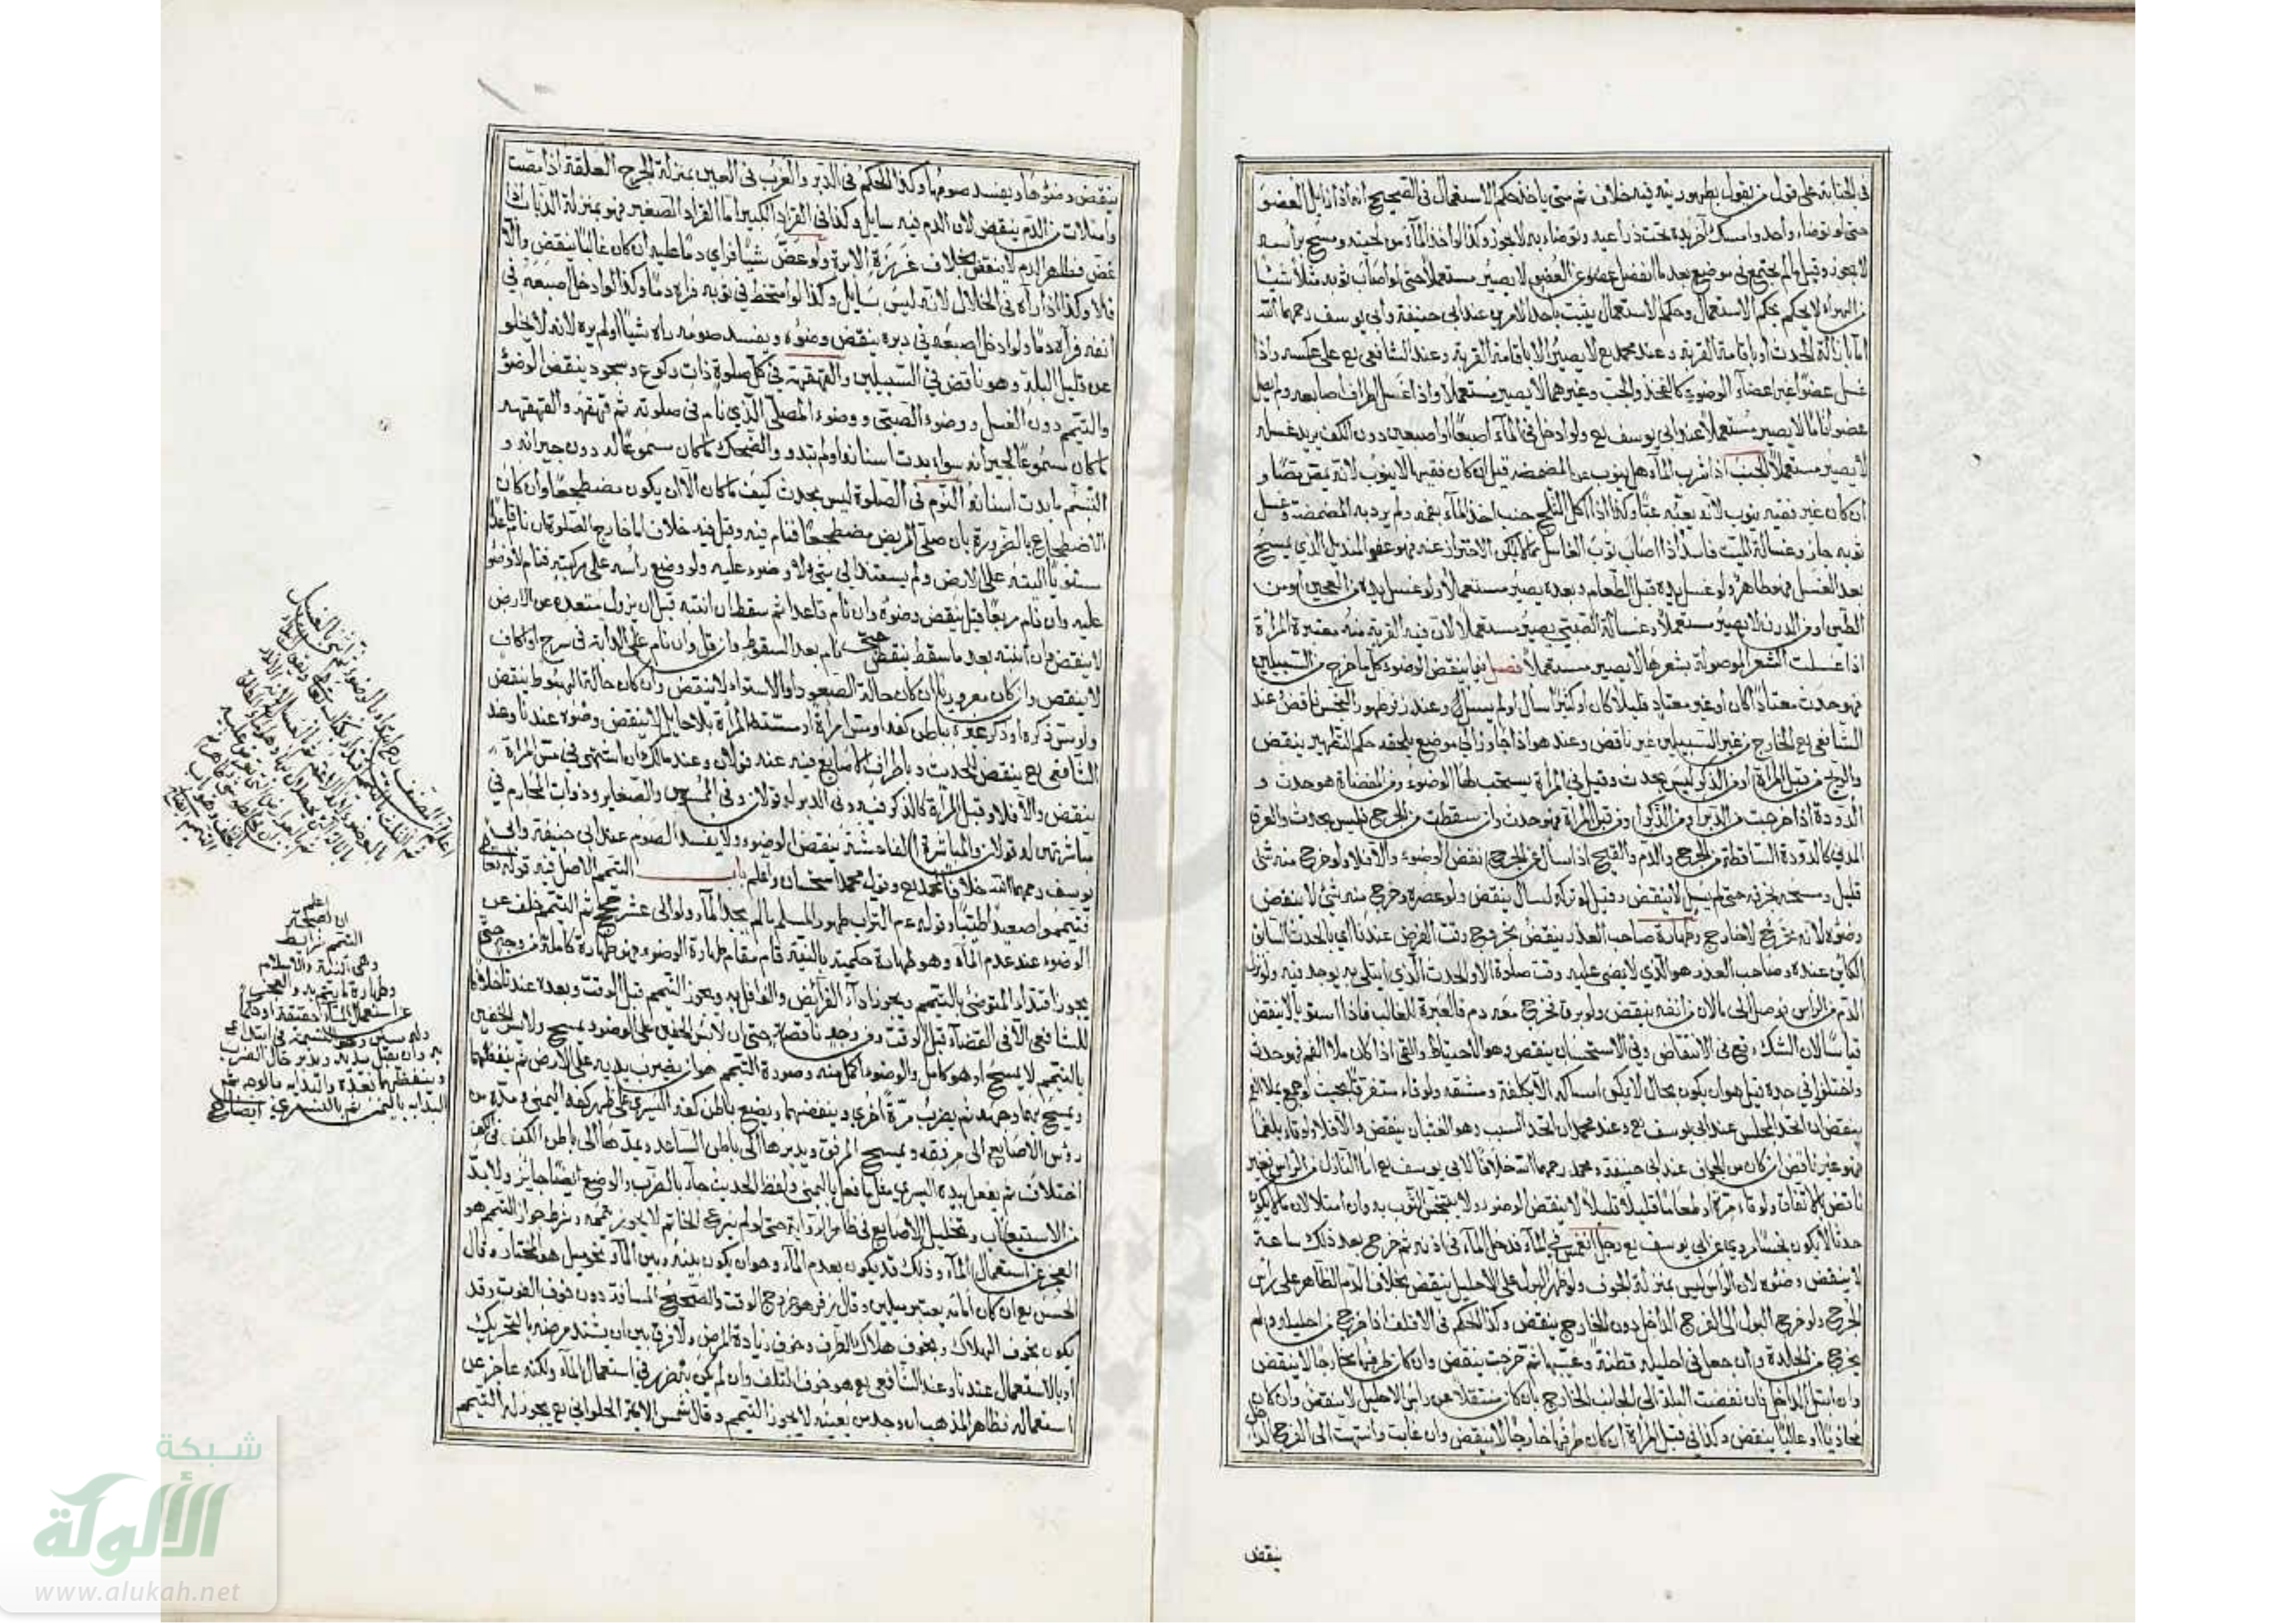 في الجنابة على قول من يقول بطهوريته فيه خلاف ثم متى ياخذ حكم الاستعمال في الصحيح انه اذا زايل العضو
حتى لو توضاء واحد وامسك آخر يده تحت ذراعيه وتوضاء به لا يجوز وكذا لو اخذ الماء من لحيته ومسح براسه
لا يجوز وقيل ما لم يجتمع في موضع بعد ما انفصل عضو عن العضو لا يصير مستعملا حتى لو اصاب ثوبه مثلا شيئا
من الهواء لا يحكم بحكم الاستعمال وحكم الاستعمال يثبت باحد الامرين عند ابي حنيفة وابي يوسف رحمهما الله
اما بازالة الحدث او باقامة القربة وعند محمد رح لا يصير الا باقامة القربة وعند الشافعي رح على عكسه واذا
غسل عضوا غير اعضاء الوضوء كالفخذ والجنب وغيرهما لا يصير مستعملا واذا غسل اطراف اصابعه ولم يصل
عضوا تاما لا يصير مستعملا عند ابي يوسف رح ولو ادخل في الماء اصبعا او اصبعين دون الكف يريد غسله
لا يصير مستعملا الجنب اذا شرب الماء هل ينوب عن المضمضة قيل ان كان فقيها لا ينوب لانه يمص مصا و
ان كان غير فقيه ينوب لانه يعبه عبا وكذا اذا اكل الثلج جنب اخذ الماء بفمه ولم يرد به المضمضة وغسل
ثوبه جاز وغسالة الميت فاسد اذا اصاب ثوب الغاسل مما لا يمكن الاحتراز عنه فهو عفو المنديل الذي يمسح
بعد الغسل فهو طاهر ولو غسل يده قبل الطعام وبعده يصير مستعملا ولو غسل يده من العجين او من
الطين او من الدرن لا يصير مستعملا وغسالة الصبي يصير مستعملا لان فيه القربة منه معتبرة المراة
اذا غسلت الشعر الموصولة بشعرها لا يصير مستعملا فصل فيما ينقض الوضوء كل ما خرج من السبيلين
فهو حدث معتادا كان او غير معتاد قليلا كان او كثيرا سال او لم يسل وعند زفر ظهور النجس ناقض عند
الشافعي رح الخارج من غير السبيلين غير ناقض وعند هو اذا جاوز الى موضع يلحقه حكم التطهير ينقض
والريح من قبل المراة او من الذكر ليس بحدث وقيل في المراة يستحب لها الوضوء ومن المفضاة هو حدث و
الدودة اذا خرجت من الدبر او من الذكر او من قبل المراة فهو حدث وان سقطت من الجرح فليس بحدث والعرق
المدني كالدودة الساقطة من الجرح والدم والقيح اذا سال عن الجرح نقض الوضوء والا فلا ولو خرج منه شئ
قليل ومسحه بخرقة حتى لم يسل لا ينقض وقيل لو تركه لسال ينقض ولو عصره وخرج منه شئ لا ينقض
وضوءه لانه مخرج لا خارج وطهارة صاحب العذر ينقض بخروج وقت الفرض عندنا اي بالحدث السابق
الكاين عنده وصاحب العذر هو الذي لا يمضي عليه وقت صلاة الا والحدث الذي ابتلي به يوجد فيه ولو نزل
الدم من الراس فوصل الى ما لان من انفه ينقض ولو بزق فخرج معه دم فالعبرة للغالب فاذا استويا لا ينقض
قياسا لان الشك وقع في الانتقاض وفي الاستحسان ينقض وهو الاحتياط والقئ اذا كان ملا الفم فهو حدث
واختلفوا في حده قيل هو ان يكون بحال لا يمكن امساكه الا بكلفة ومشقه ولو قاء متفرقا بحيث لو جمع يملا الفم
ينقض ان اتحد المجلس عند ابي يوسف رح وعند محمد ان اتحد السبب وهو الغثيان ينقض والا فلا ولو قاء بلغما
فهو غير ناقض ان كان من الجوف عند ابي حنيفة ومحمد رحمهما الله خلافا لابي يوسف رح اما النازل من الراس فغير
ناقض بالاتفاق ولو قاء مرة او طعاما قليلا قليلا لا ينقض الوضوء ولا يتنجس الثوب به وان امتلا لان ما لا يكون
حدثا لا يكون نجسا روي عن ابي يوسف رح رجل انغمس في الماء فدخل الماء في اذنه ثم خرج بعد ذلك ساعة
لا ينقض وضوءه لان الراس ليس بمنزلة الجوف ولو ظهر البول على الاحليل ينقض بخلاف الدم الظاهر على راس
الجرح ولو خرج البول الى الفرج الداخل دون الخارج ينقض وكذا الحكم في الاقلف اذا خرج من احليله ولم
يخرج من الجلدة وان جعل في احليله قطنة وغيبها ثم خرجت ينقض وان كان طرفها خارجا لا ينقض
وان ابتل الداخل فان نفضت البلة الى الجانب الخارج بان كان متسفلا عن راس الاحليل لا ينقض وان كان
محاذيا او عاليا ينقض وكذا في قبل المراة ان كان طرفها خارجا لا ينقض وان غابت وانتهت الى الفرج الداخل
ينقض
ينقض وضوءها ويفسد صومها وكذا الحكم في الدبر والغرب في العين بمنزلة الجرح العلقة اذا مصت
وامتلات من الدم ينقض لان الدم فيه سايل وكذا في القراد الكبير اما القراد الصغير فهو بمنزلة الذباب اذا
عض فظهر الدم لا ينقض بخلاف غريزة الابرة ولو عض شيئا فراى دما عليه ان كان غالبا ينقض والا
فلا وكذا اذا راه في الخلال لانه ليس بسايل وكذا لو امتخط في ثوبه فراه دما وكذا لو ادخل اصبعه في
انفه فرآه دما ولو ادخل اصبعه في دبره ينقض وضوءه ويفسد صومه راه شيئا او لم يره لانه لا يخلو
عن قليل البلة وهو ناقض في السبيلين والقهقهة في كل صلوة ذات ركوع وسجود ينقض الوضوء
والتيمم دون الغسل ووضوء الصبي ووضوء المصلي الذي نام في صلوته ثم قهقه والقهقهه
ما كان مسموعا لجيرانه سواء بدت اسنانه او لم تبدو والضحك ما كان مسموعا له دون جيرانه و
التبسم ما بدت اسنانه النوم في الصلوة ليس بحدث كيف ما كان الا ان يكون مضطجعا وان كان
الاضطجاع بالضرورة بان صلى المريض مضطجعا فنام فيه وقيل فيه خلاف اما خارج الصلوة ان نام قاعدا
مستويا اليته على الارض ولم يستند الى شئ لا وضوء عليه ولو وضع راسه على ركبتيه فنام لا وضوء
عليه وان نام مربعا قيل ينقض وضوءه وان نام قاعدا ثم سقط ان انتبه قبل ان يزول مقعده عن الارض
لا ينقض وان انتبه بعد ما سقط ينقض حتى نام بعد السقوط وان قل وان نام على الدابة في سرج او اكاف
لا ينقض وان كان معروريا ان كان حالة الصعود او الاستواء لا ينقض وان كان حالة الهبوط ينقض
ولو مس ذكره او ذكر غيره بباطن كفه او مس امراة او مسته المراة بلا حايل لا ينقض وضوءه عندنا وعند
الشافعي رح ينقض الحدث وباطراف الاصابع فيه عنه قولان وعند مالك ان اشتهى في مس المراة
ينقض والا فلا وقبل المراة كالذكر فيه وفي الدبر له قولان وفي الملموس والصغاير وذوات المحارم في
مباشرتهن له قولان والمباشرة الفاحشة ينقض الوضوء ولا يفسد الصوم عند ابي حنيفة وابي
يوسف رحمهما الله خلافا لمحمد رح وقول محمد استحسان واعلم باب التيمم الاصل فيه قوله تعالى
فتيمموا صعيدا طيبا وقوله عم التراب طهور المسلم ما لم يجد الماء ولو الى عشر حجج ثم التيمم خلف عن
الوضوء عند عدم الماء وهو طهارة حكمية بالنية قام مقام طهارة الوضوء فهو طهارة كاملة من وجه حتى
يجوز اقتداء المتوضئ بالتيمم ويجوز اداء الفرائض والنوافل به ويجوز التيمم قبل الوقت وبعده عندنا خلافا
للشافعي الا في القضاء قبل الوقت ومن وجه ناقصة حتى ان لابس الخفين على الوضوء يمسح ولابس الخفين
بالتيمم لا يمسح اذ هو كامل والوضوء اكمل منه وصورة التيمم هو ان يضرب يديه على الارض ثم ينفضهما
ويمسح بهما وجهه ثم يضرب مرة اخرى وينفضهما ويضع باطن كفه اليسرى على ظهر كفه اليمنى ومده من
رؤس الاصابع الى مرفقه ويمسح المرفق ويديرها الى باطن الساعد ويمدها الى باطن الكف وفي الكف
اختلاف ثم يفعل بيده اليسرى مثل ما فعل باليمنى ولفظ الحديث جاء بالضرب والوضع ايضا جايز ولا بد
من الاستيعاب وتخليل الاصابع في ظاهر الرواية حتى لو لم ينزع الخاتم لا يجوز تيممه وشرط جواز التيمم هو
العجز عن استعمال الماء وذلك قد يكون بعدم الماء وهو ان يكون بينه وبين الماء نحو ميل هو المختار وقال
الحسن رح ان كان امامه يعتبر ميلين وقال زفر هو خروج الوقت والصحيح المسافة دون خوف الفوت وقد
يكون بخوف الهلاك وبخوف هلاك الطرف وخوف زيادة المرض ولا فرق بين ان يشتد مرضه بالتحريك
او بالاستعمال عندنا وعند الشافعي رح هو خوف التلف وان لم يكن يتضرر في استعمال الماء ولكنه عاجز عن
استعماله فظاهر المذهب ان وجد من يعينه لا يجوز التيمم وقال شمس الايمة الحلواني رح يجوز له التيمم
اعلم ان المصنف رح ابتداء بالوضوء ثم ثنى بالغسل
اعلم
ان لصحة
التيمم شرايط
وهي النية والاسلام
وطهارة ما يتيمم به والعجز
عن استعمال الماء حقيقة او حكما
وله سنن وهو التسمية في ابتدائه
به وان يقبل بيديه ويدبر حال الضرب
وينفضهما بعده والبداية بالوجه ثم
البداية باليمنى ثم باليسرى ايضاح
شبكة
الألوكة
www.alukah.net